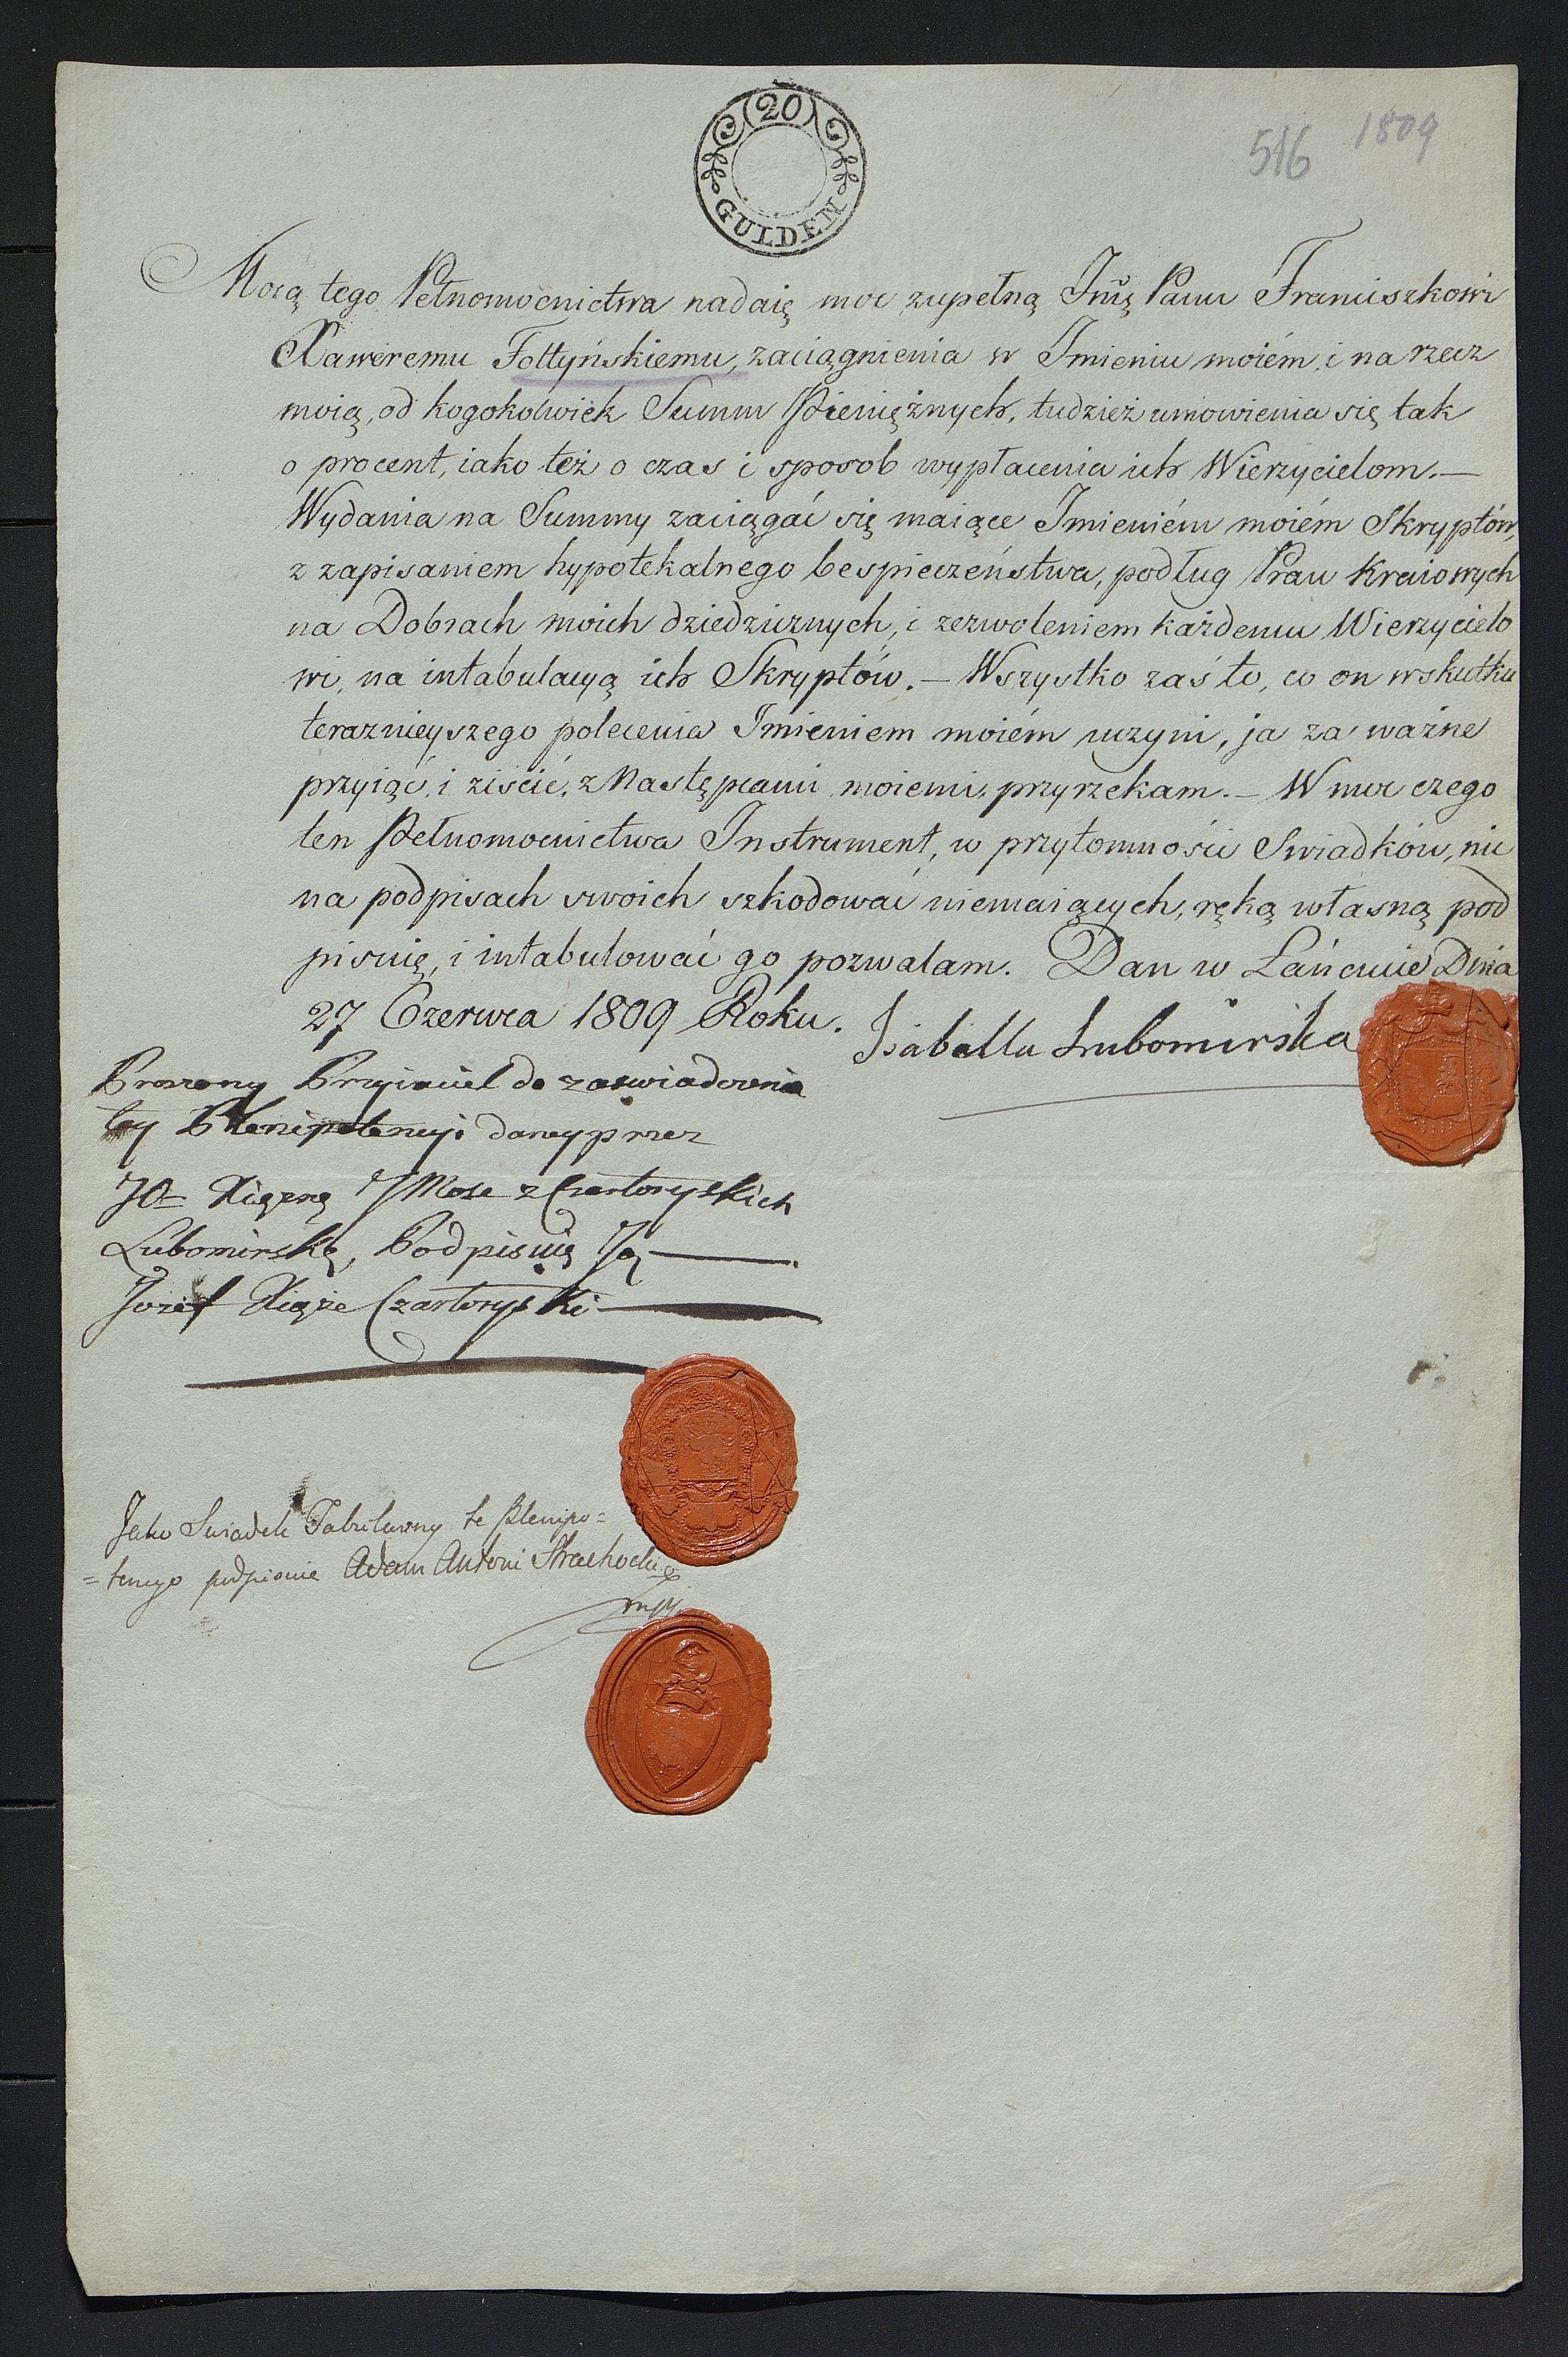 20
GULDEN
516 1809
Mocą tego Pełnomocnictwa nadaię moc zupełną Jmć Panu Franciszkowi
Xaweremu Foltyńskiemu, zaciągnienia w Jmieniu moiém, i na rzecz
moią, od kogokolwiek Summ Pieniężnych, tudzież umowienia się tak
o procent, iako też o czas i sposob wypłacenia ich Wierzycielom.—
Wydania na Summy zaciągać się maiące Jmieniém moiém Skryptów,
z zapisaniem hypotekalnego bespieczeństwa, podług Praw Kraiowych
na Dobrach moich dziedzicznych, i zezwoleniem każdemu Wierzycielo
wi, na intabulacyą ich Skryptów.— Wszystko zaś to, co on w skutku
teraznieyszego polecenia Jmieniem moiém uczyni, ja za ważne
przyiąć, i ziścić, z Następcami moiemi, przyrzekam.— W moc czego
ten Pełnomocnictwa Instrument, w przytomności Swiadków, nic
na podpisach swoich szkodować niemaiących, ręką własną pod
pisuię, i intabulować go pozwalam. Dan w Łańcucie Dnia
27 Czerwca 1809 Roku. Isabella Lubomirska
Proszony Przyiaciel do zaswiadczenia
tey Plenipotencyi daney przez
JO Xiężnę JMosc z Czartoryskich
Lubomirską, Podpisuię Ję
Jozef Xiąże Czartoryski
Jako Swiadek Tabularny tę Plenipo=
=tencyę podpisuię Adam Antoni Strachocki
mpp